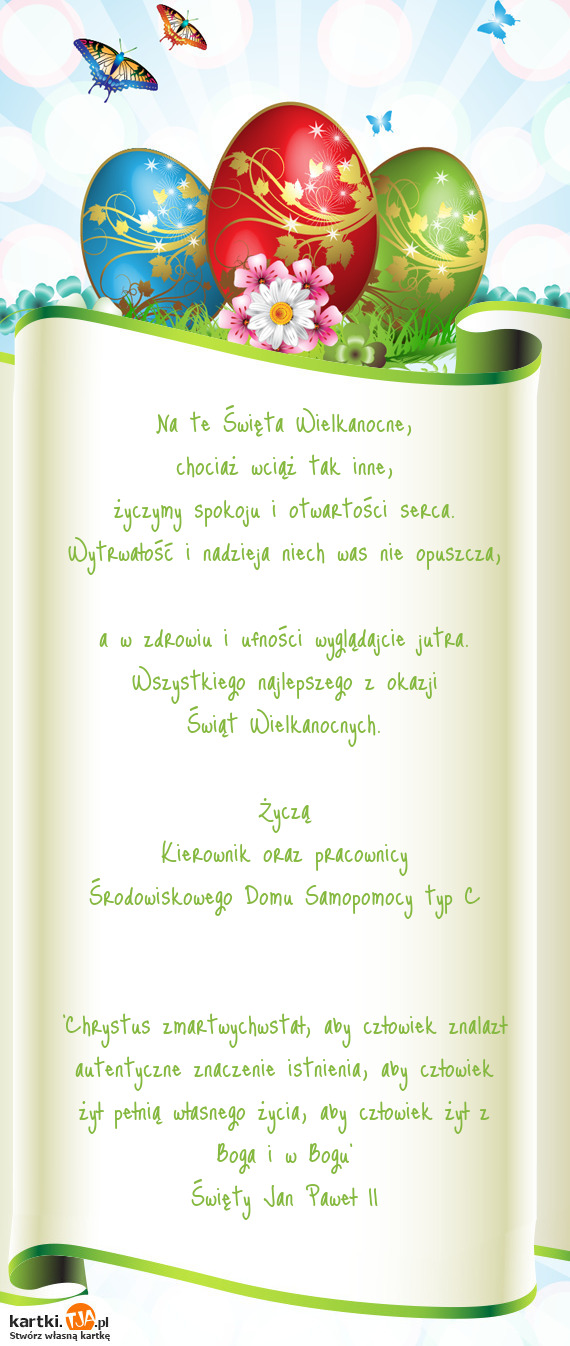 Na te Święta Wielkanocne,
chociaż wciąż tak inne,
życzymy spokoju i otwartości serca.
Wytrwałość i nadzieja niech was nie opuszcza,
a w zdrowiu i ufności wyglądajcie jutra.
Wszystkiego najlepszego z okazji
Świąt Wielkanocnych.
Życzą
Kierownik oraz pracownicy
Środowiskowego Domu Samopomocy typ C
"Chrystus zmartwychwstał, aby człowiek znalazł
autentyczne znaczenie istnienia, aby człowiek
żył pełnią własnego życia, aby człowiek żył z
Boga i w Bogu"
Święty Jan Paweł II
kartki.TJA.pl
Stwórz własną kartkę